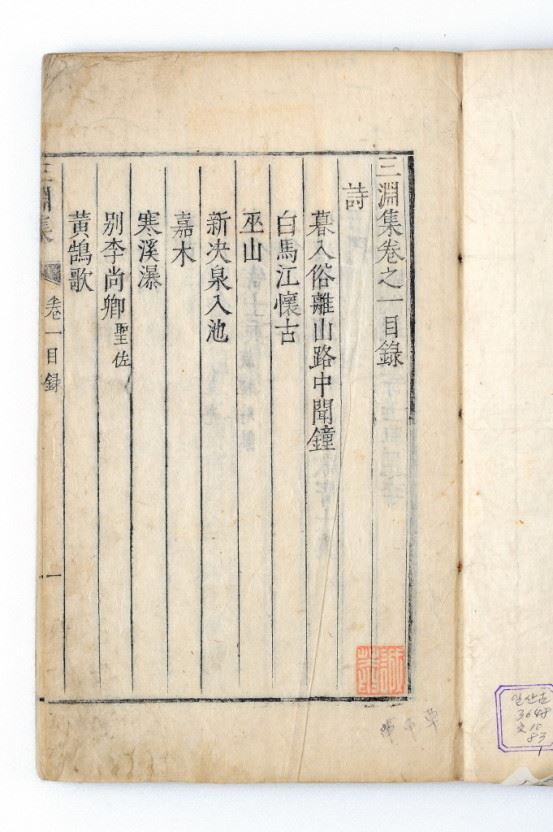 三淵集卷之一目錄
詩
暮入俗離山路中聞鐘
白馬江懷古
巫山
新决泉入池
嘉木
寒溪瀑
別李尚卿聖佐
黃鵠歌
三淵集
卷一目録
一
3648
83